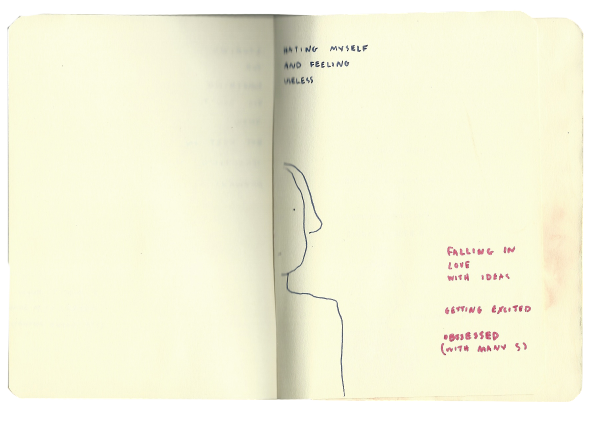 HATING MYSELF
AND FEELING
USELESS
FALLING IN
LOVE
WITH IDEAS
GETTING EXCITED
OBSESSED
(WITH MANY S)